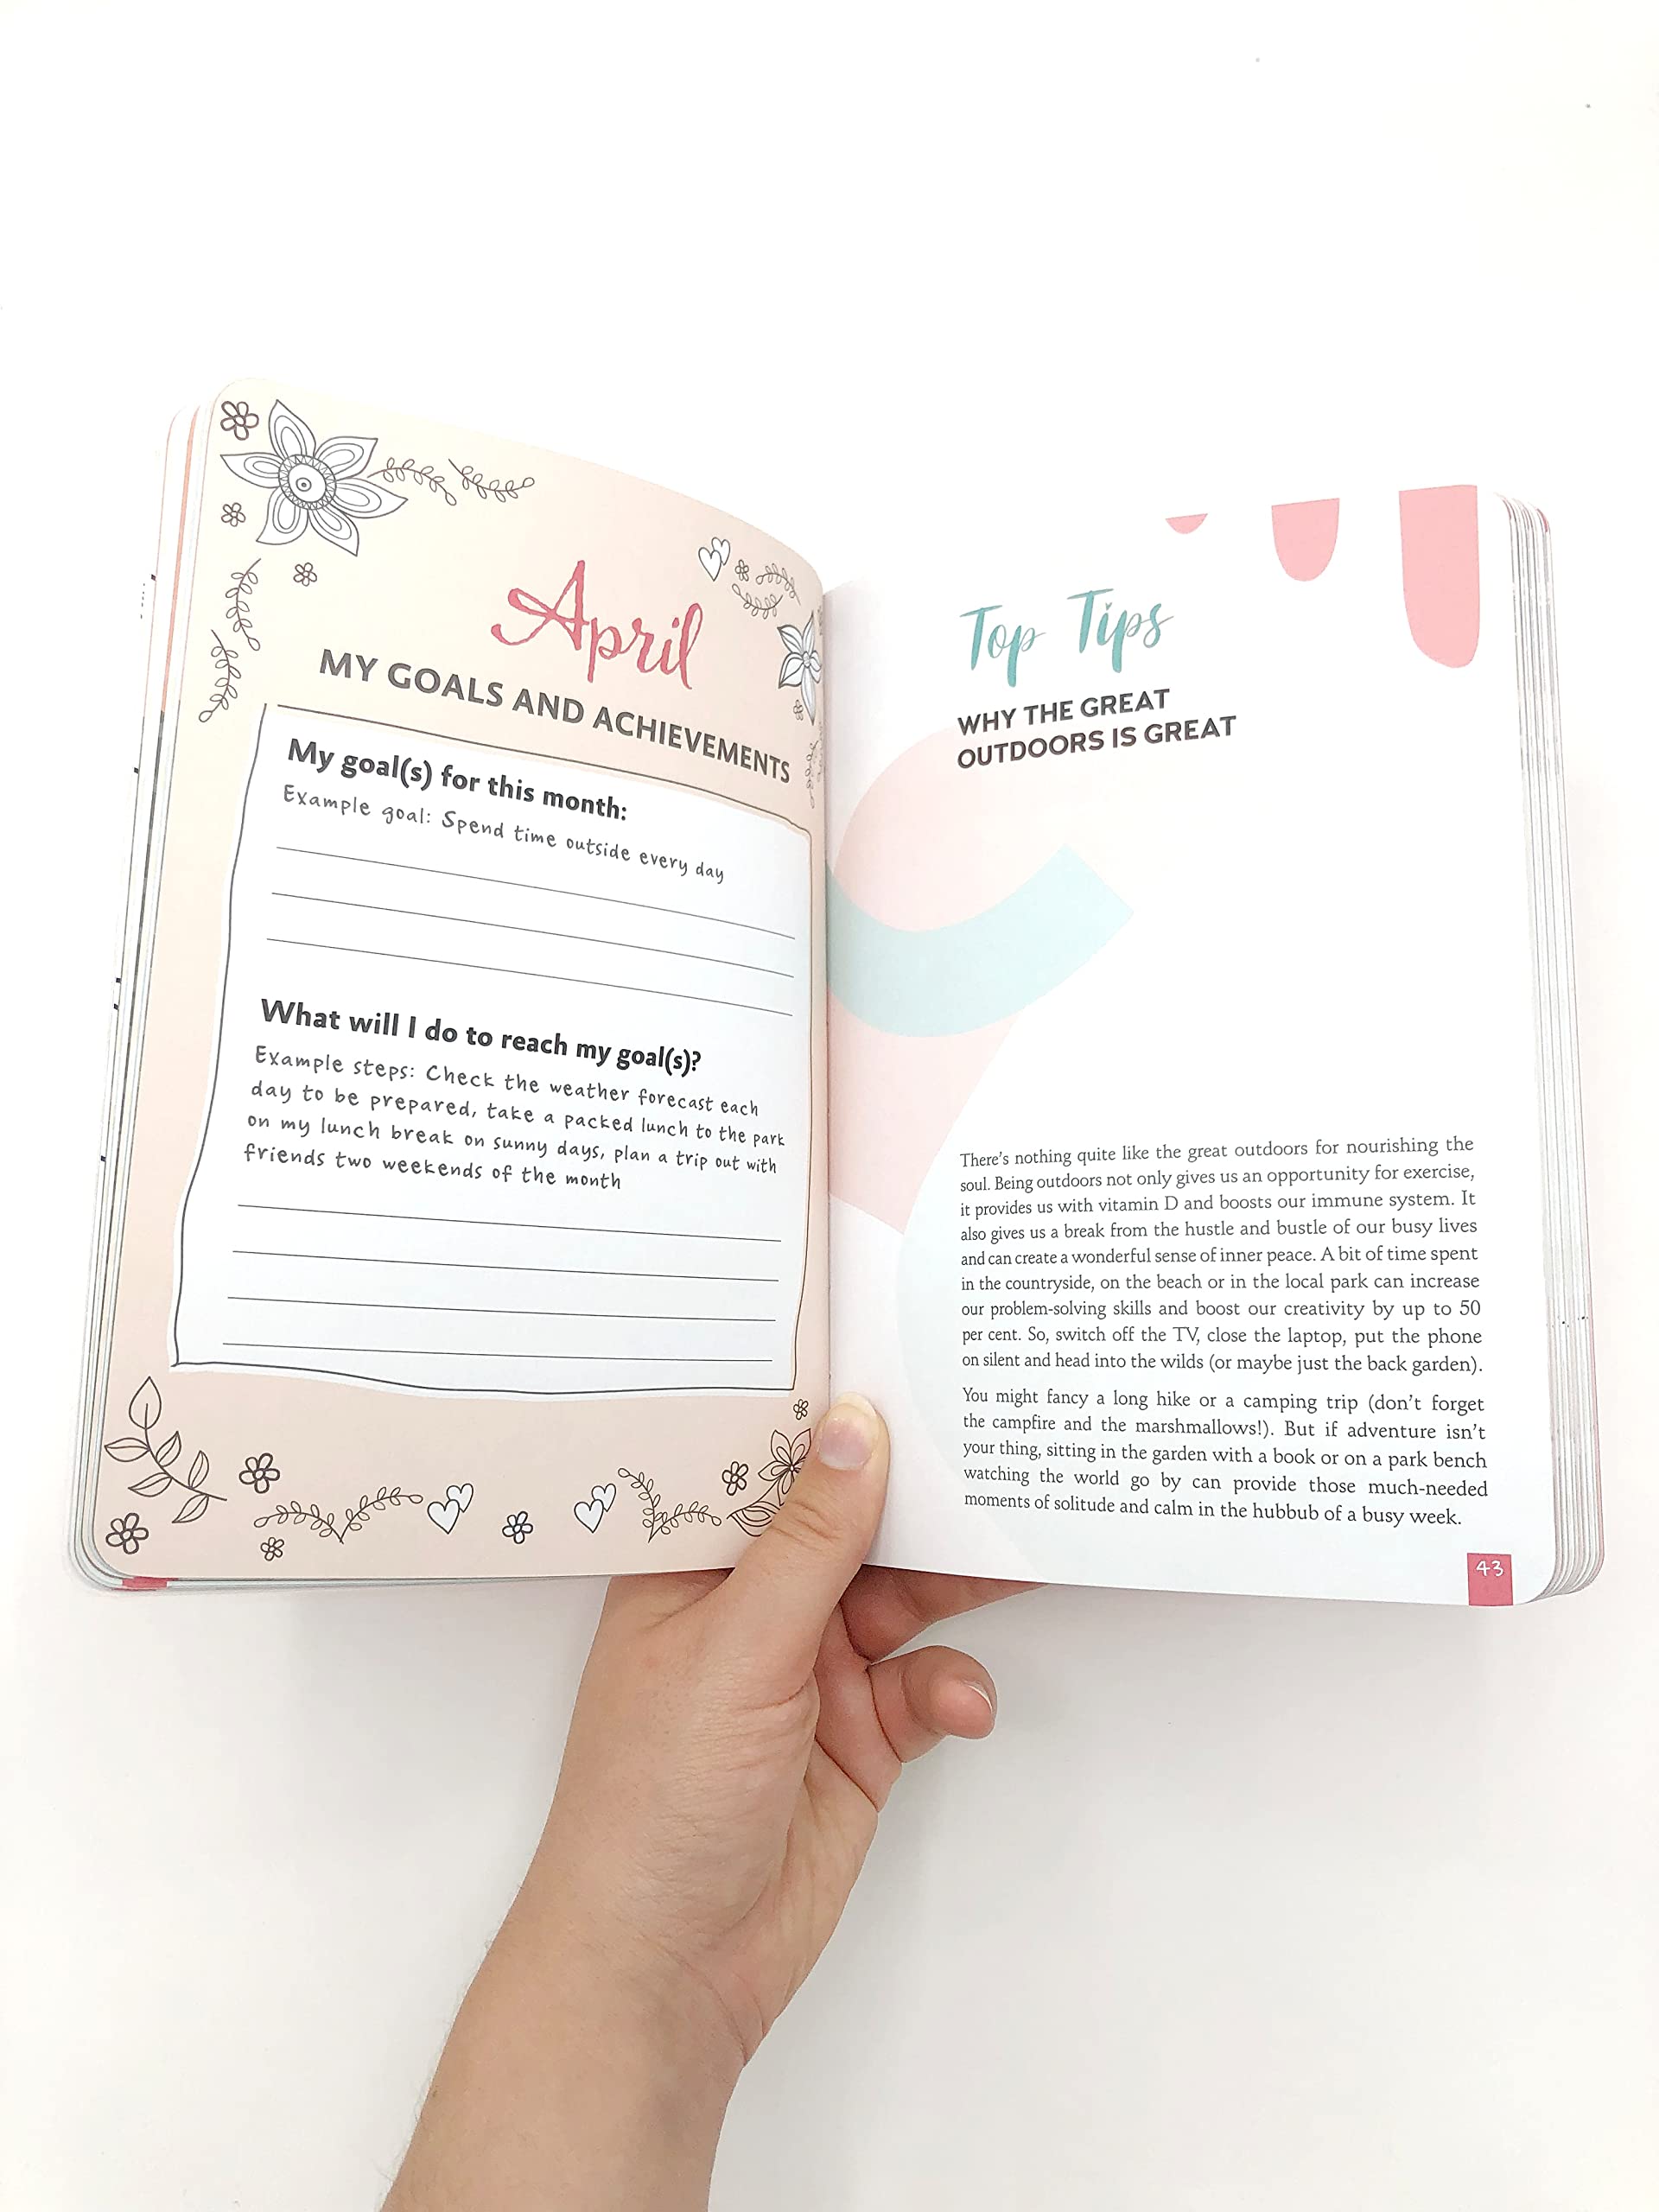 April
MY GOALS AND ACHIEVEMENTS
My goal(s) for this month:
Example goal: Spend time outside every day
What will I do to reach my goal(s)?
Example steps: Check the weather forecast each
day to be prepared, take a packed lunch to the park
on my lunch break on sunny days, plan a trip out with
friends two weekends of the month
Top Tips
WHY THE GREAT
OUTDOORS IS GREAT
There's nothing quite like the great outdoors for nourishing the
soul. Being outdoors not only gives us an opportunity for exercise,
it provides us with vitamin D and boosts our immune system. It
also gives us a break from the hustle and bustle of our busy lives
and can create a wonderful sense of inner peace. A bit of time spent
in the countryside, on the beach or in the local park can increase
our problem-solving skills and boost our creativity by up to 50
per cent. So, switch off the TV, close the laptop, put the phone
on silent and head into the wilds (or maybe just the back garden).
You might fancy a long hike or a camping trip (don't forget
the campfire and the marshmallows!). But if adventure isn't
your thing, sitting in the garden with a book or on a park bench
watching the world go by can provide those much-needed
moments of solitude and calm in the hubbub of a busy week.
43